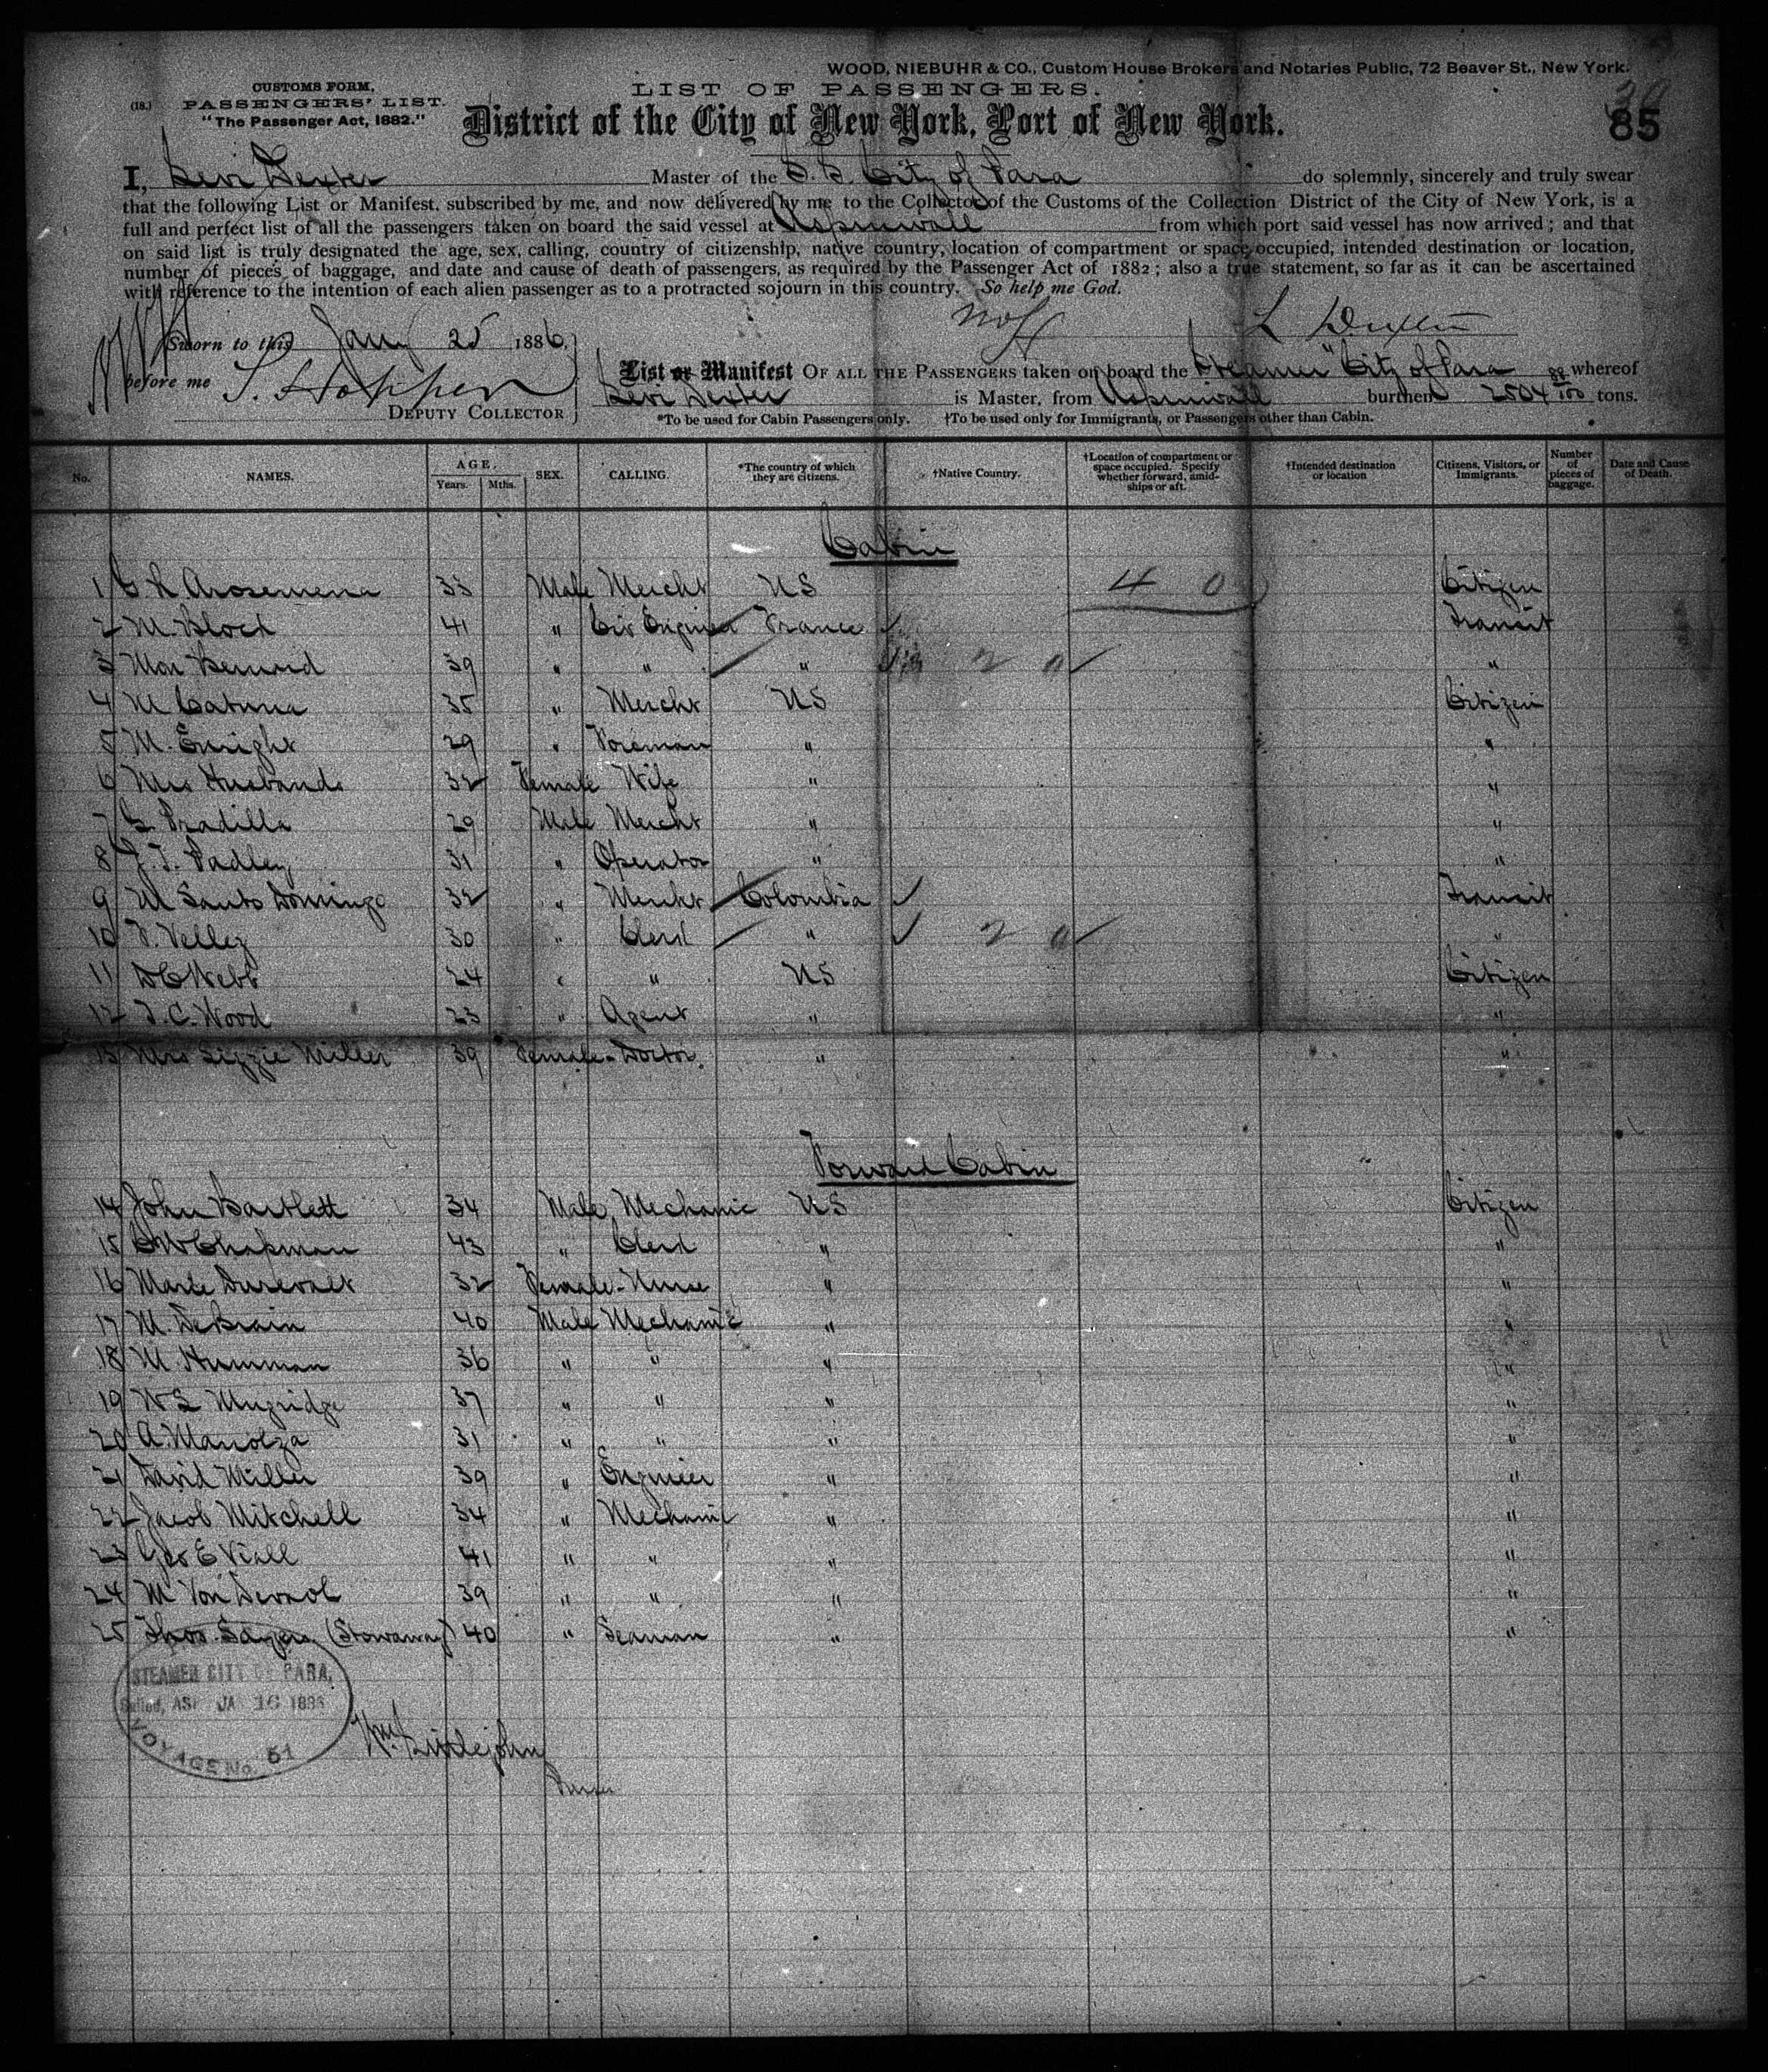 WOOD, NIEBUHR & CO., Custom House Brokers and Notaries Public, 72 Beaver St., New York.
CUSTOMS FORM,
(18.) PASSENGERS' LIST.
"The Passenger Act, 1882."
LIST OF PASSENGERS.
District of the City of New York, Port of New York.
85
I, Levi Dexter Master of the S.S. City of Para do solemnly, sincerely and truly swear
that the following List or Manifest, subscribed by me, and now delivered by me to the Collector of the Customs of the Collection District of the City of New York, is a
full and perfect list of all the passengers taken on board the said vessel at Aspinwall from which port said vessel has now arrived; and that
on said list is truly designated the age, sex, calling, country of citizenship, native country, location of compartment or space occupied, intended destination or location,
number of pieces of baggage, and date and cause of death of passengers, as required by the Passenger Act of 1882; also a true statement, so far as it can be ascertained
with reference to the intention of each alien passenger as to a protracted sojourn in this country. So help me God.
Sworn to this Jany 25 1886. L Dexter
before me S. Hopper
DEPUTY COLLECTOR
List or Manifest OF ALL THE PASSENGERS taken on board the Steamer "City of Para whereof
Levi Dexter is Master, from Aspinwall burthen 2504 88/100 tons.
*To be used for Cabin Passengers only. †To be used only for Immigrants, or Passengers other than Cabin.
No. NAMES. AGE. Years. Mths. SEX. CALLING. *The country of which they are citizens. †Native Country. †Location of compartment or space occupied. Specify whether forward, amidships or aft. †Intended destination or location Citizens, Visitors, or Immigrants. Number of pieces of baggage. Date and Cause of Death.
Cabin
1 Arosemena 33 Male Mercht US 4 0 Citizen
2 M. Bloch 41 " Civ Engineer France Transit
3 Mon 39 " " " 2 0 "
4 M 35 " Mercht US Citizen
5 M. Enright 29 " Foreman " "
6 Mrs Husbands 32 Female Wife " "
7 Pradilla 29 Male Mercht " "
8 J. T. Padley 31 " Operator " "
9 M Santo Domingo 32 " Mercht Colombia Transit
10 F. Vellez 30 " Clerk " 2 0 "
11 Webb 24 " " US Citizen
12 Wood 23 " Agent " "
13 Mrs Lizzie Miller 39 Female Doctor " "
Forward Cabin
14 John Bartlett 34 Male Mechanic US Citizen
15 Chapman 43 " Clerk " "
16 Marie 32 Female Nurse " "
17 M. DeBrain 40 Male Mechanic " "
18 M. Humman 36 " " " "
19 Mugridge 37 " " " "
20 A. 31 " " " "
21 David Miller 39 " Engineer " "
22 Jacob Mitchell 34 " Mechanic " "
23 Geo E Viall 41 " " " "
24 M Von 39 " " " "
25 Thos. Sayers (Stowaway) 40 " Seaman " "
STEAMER CITY OF PARA,
Sailed, ASP JAN 16 1886
VOYAGE No. 51
Wm Littlejohn
Purser